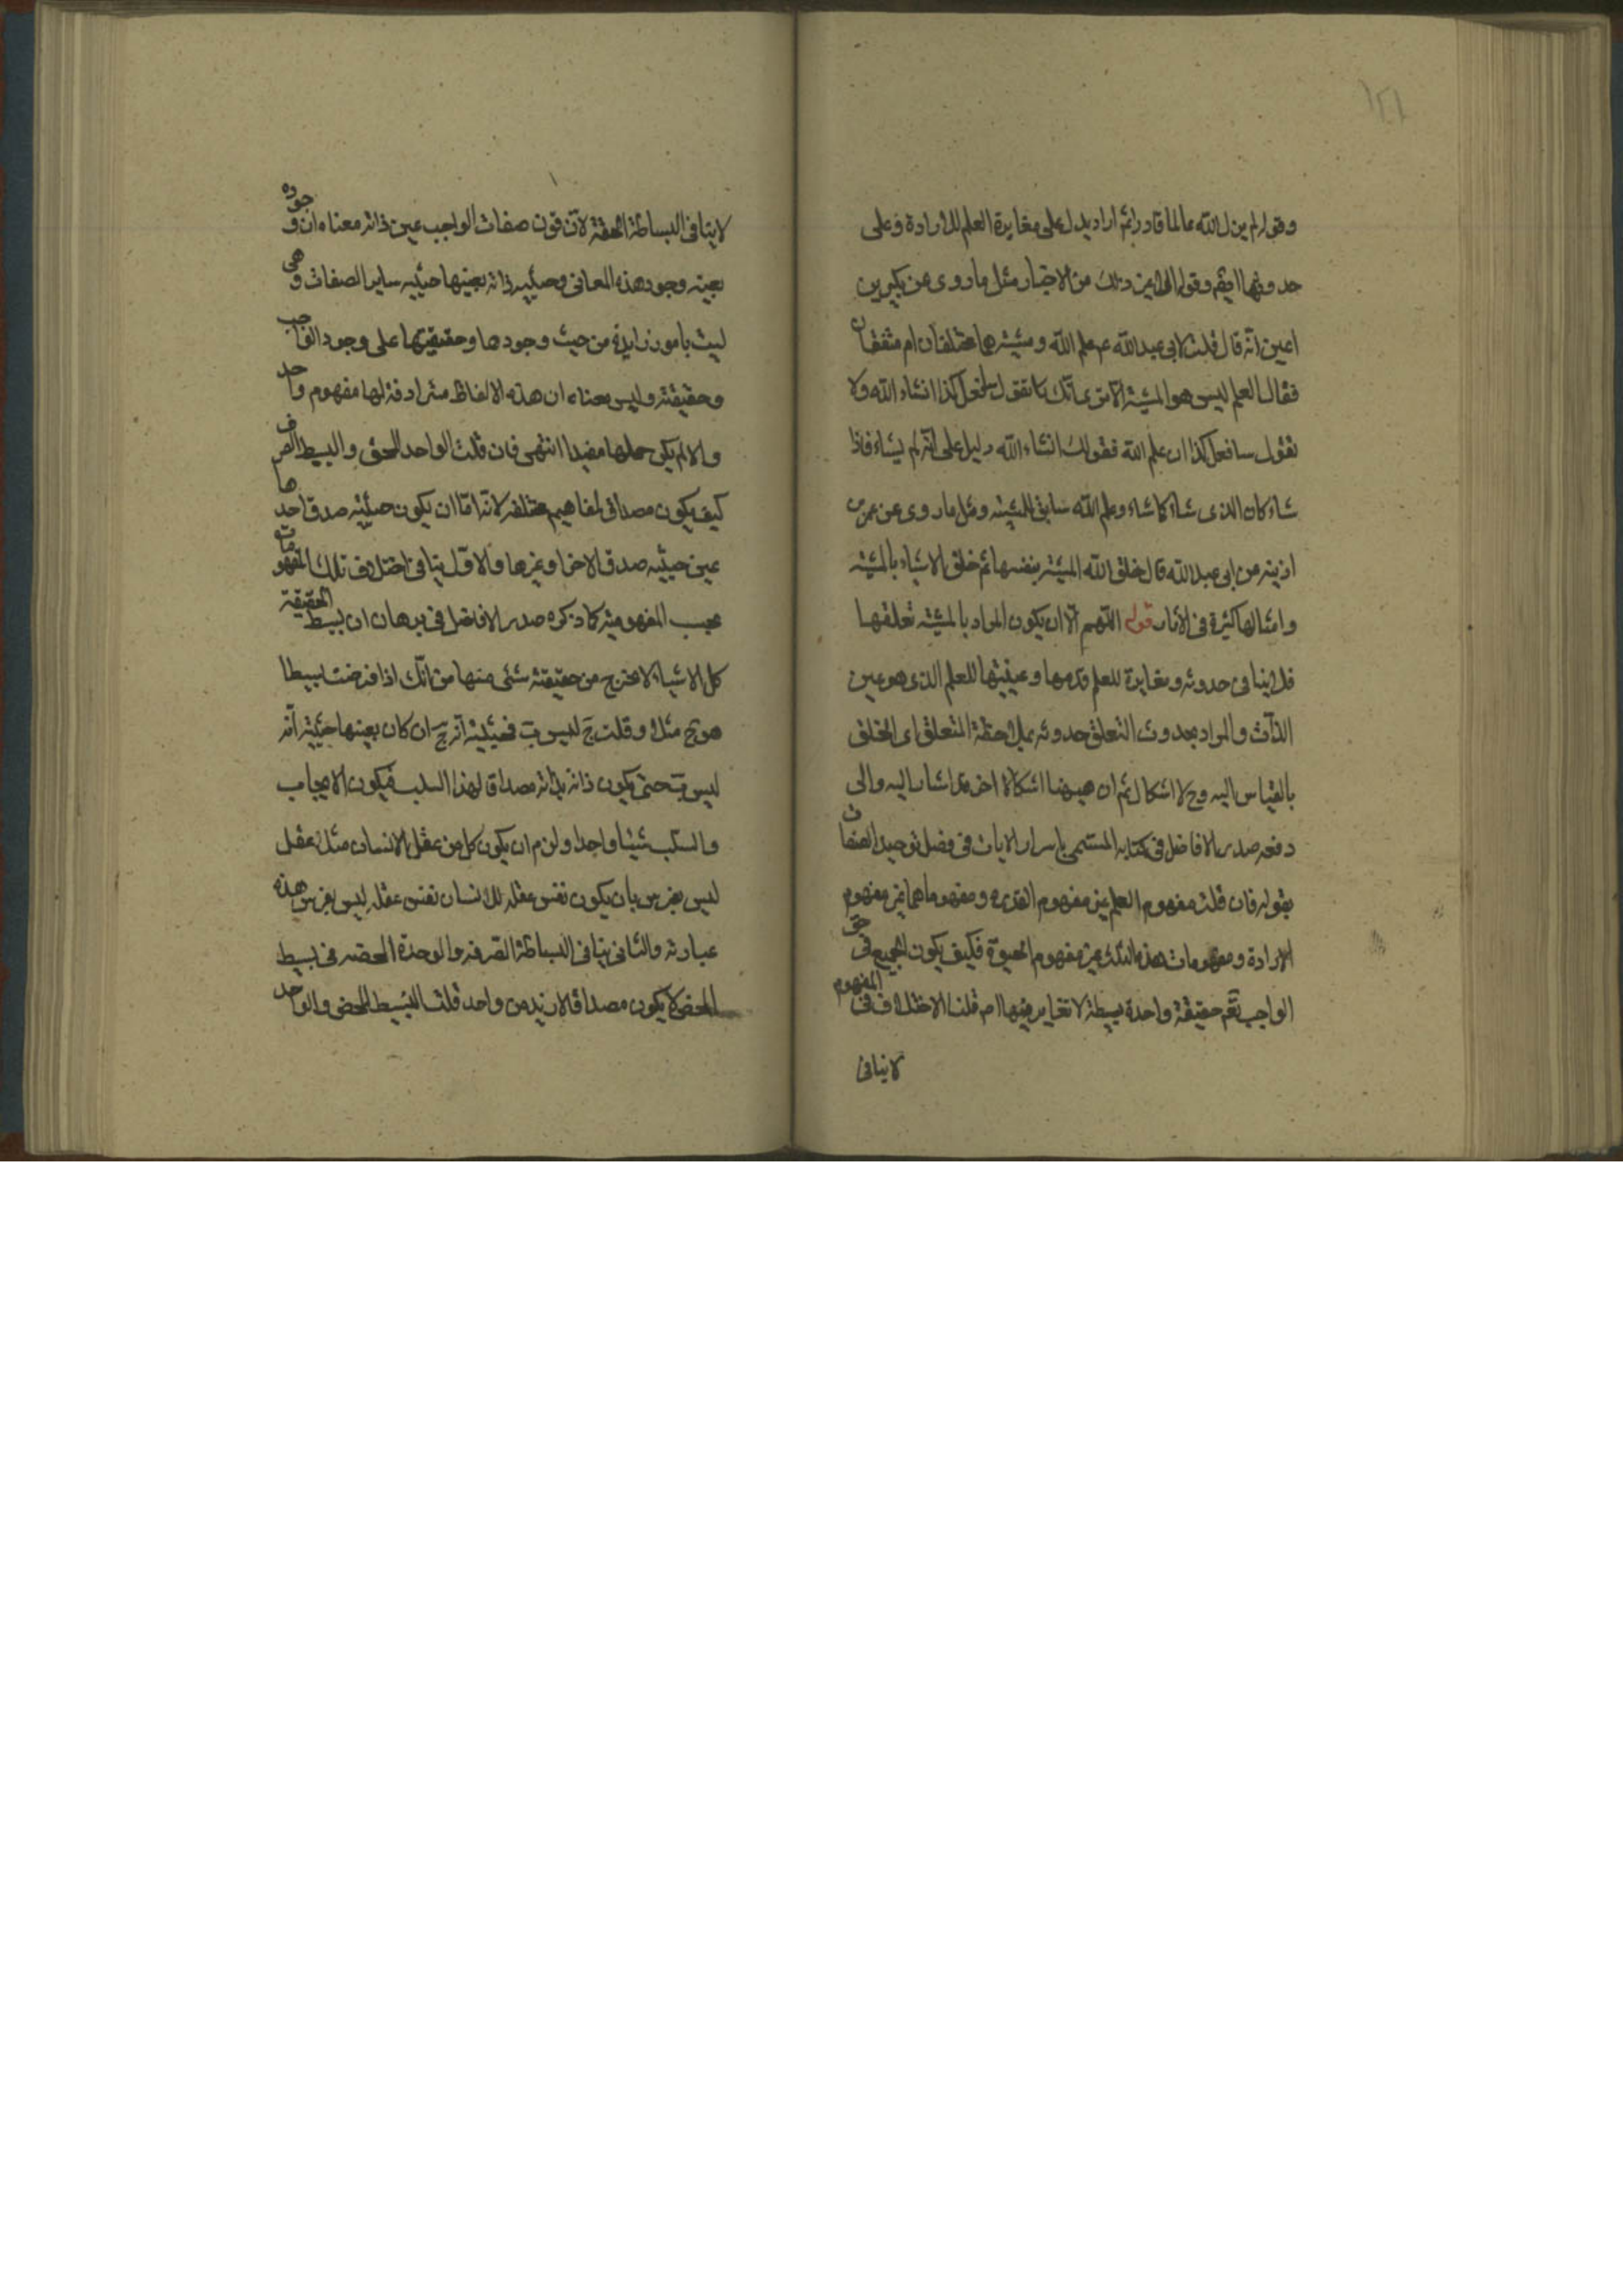 ١٢١
وقوله لم يزل الله عالما قادرا ثم اراد يدل على مغايرة العلم للارادة وعلى
حدوثها ايضم وقوله الى غير ذلك من الاخبار مثل ما روى عن بكير بن
اعين انه قال قلت لابى عبدالله ع م علم الله ومشيته هما مختلفان ام متفقان
فقال العلم ليس هو المشية الا ترى انك تقول سافعل كذا انشاء الله ولا
تقول سافعل كذا ان علم الله فقولك انشاء الله دليل على انه لم يشاء فاذا
شاء كان الذى شاء كما شاء وعلم الله سابق للمشيه ومثل ما روى عن عمر بن
اذينه عن ابى عبدالله قال خلق الله المشيه بنفسها ثم خلق الاشياء بالمشيه
وامثالها كثيرة فى الاثار قوله اللهم الا ان يكون المراد بالمشيته تعلقها
فلا ينافى حدوثه ومغايرة للعلم قدمها وعينيتها للعلم الذى هو عين
الذات والمراد بحدوث التعلق حدوثه بملاحظة المتعلق اى الخلق
بالقياس اليه وح لا اشكال ثم ان هيهنا اشكالا اخر اشار اليه والى
دفعه صدر الافاضل فى كتابه المسمى باسرار الايات فى فصل توحيد الصفات
بقوله فان قلت مفهوم العلم غير مفهوم القدره ومفهوماهما غير مفهوم
الارادة ومفهومات هذه الثلاث غير مفهوم الحيوة فكيف يكون الجميع فى حق
الواجب تعم حقيقة واحدة بسيطة لا تغاير فيها اصم قلنا الاختلاف فى المفهوم
لا ينافى
لا ينافى البساطة الحقة لان قون صفات الواجب عين ذاته معناه ان وجوده
بعينه وجود هذه المعانى وحيثيه ذاته بعينها حيثيه ساير الصفات وهى
ليست بامور زايدة من حيث وجودها وحقيقتها على وجود الواجب
وحقيقته وليس معناه ان هذه الالفاظ مترادفة لها مفهوم واحد
والا لم يكن حملها مفيدا انتهى فان قلت الواحد الحق والبسيط الصرف
كيف يكون مصداق لمفاهيم مختلفه لانه اما ان يكون حيثيه صدق احدها
عين حيثيه صدق الاخر او غيرها والاول ينافى اختلاف تلك المفهومات
بحسب المفهوميه كما ذكره صدر الافاضل فى برهان ان بسيط الحقيقة
كل الاشياء لا يخرج من حقيقته شئى منها من انك اذا فرضت بسيطا
هو ج مثلا وقلت ج ليس ب فحيثية انه ج ان كان بعينها حيثية انه
ليس ب حتى يكون ذاته بذاته مصداقا لهذا السلب فيكون الايجاب
والسلب شيئا واحدا ولزم ان يكون كل من عقل الانسان مثلا عقل
ليس بفرس بان يكون نفس عقله للانسان نفس عقله ليس بفرس هذه
عبارته والثانى ينافى البساطة الصرفه والوحدة المحضه فى بسيط
المحض لا يكون مصداقا لازيد من واحد قلت البسيط المحض والواحد